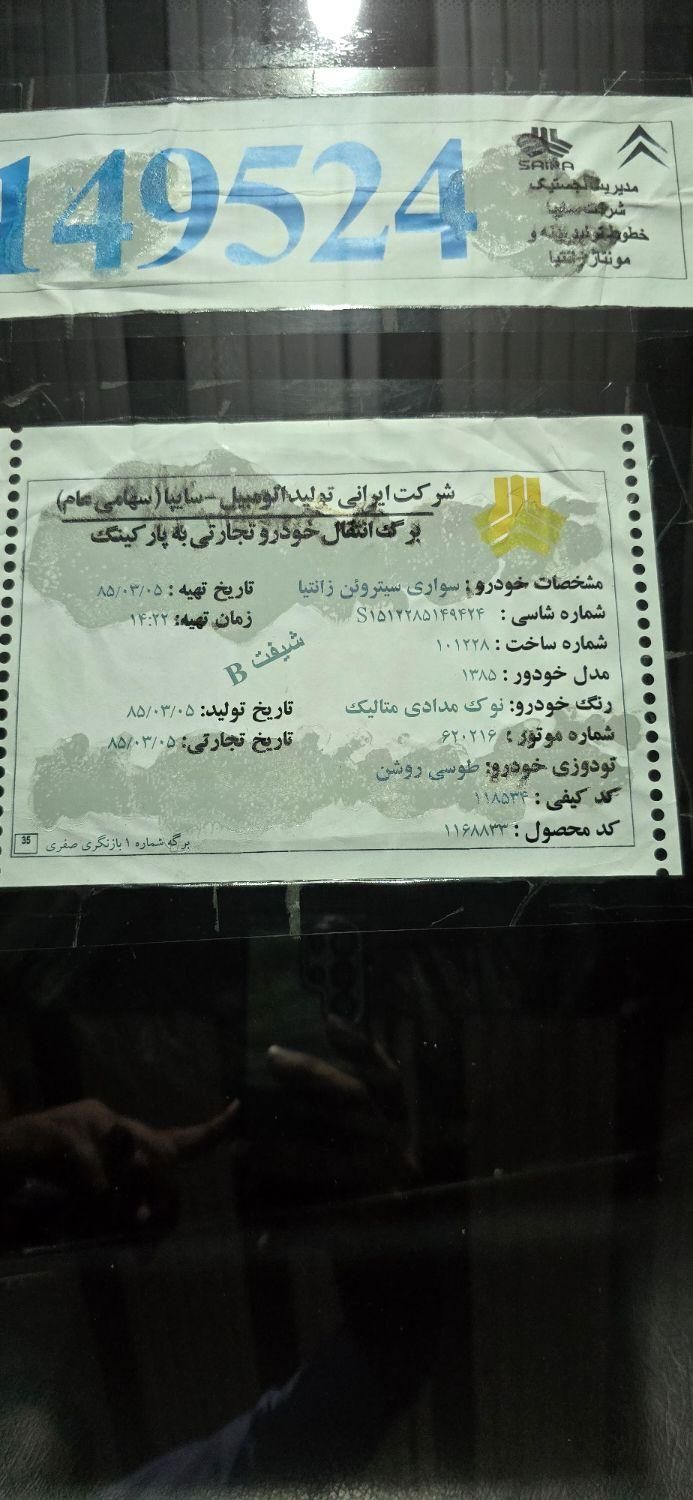 149524
SAIPA
مدیریت لجستیک
شرکت سایپا
خطوط تولید بدنه و
مونتاژ زانتیا
شرکت ایرانی تولید اتومبیل - سایپا (سهامی عام)
برگ انتقال خودرو تجارتی به پارکینگ
مشخصات خودرو : سواری سیتروئن زانتیا تاریخ تهیه : ۸۵/۰۳/۰۵
شماره شاسی : S۱۵۱۲۲۸۵۱۴۹۴۲۴ زمان تهیه: ۱۴:۲۲
شماره ساخت : ۱۰۱۲۲۸
شیفت B
مدل خودور : ۱۳۸۵
رنگ خودرو: نوک مدادی متالیک تاریخ تولید: ۸۵/۰۳/۰۵
شماره موتور : ۶۲۰۲۱۶ تاریخ تجارتی: ۸۵/۰۳/۰۵
تودوزی خودرو: طوسی روشن
کد کیفی : ۱۱۸۵۳۴
کد محصول : ۱۱۶۸۸۳۳
برگه شماره ۱ بازنگری صفری 35